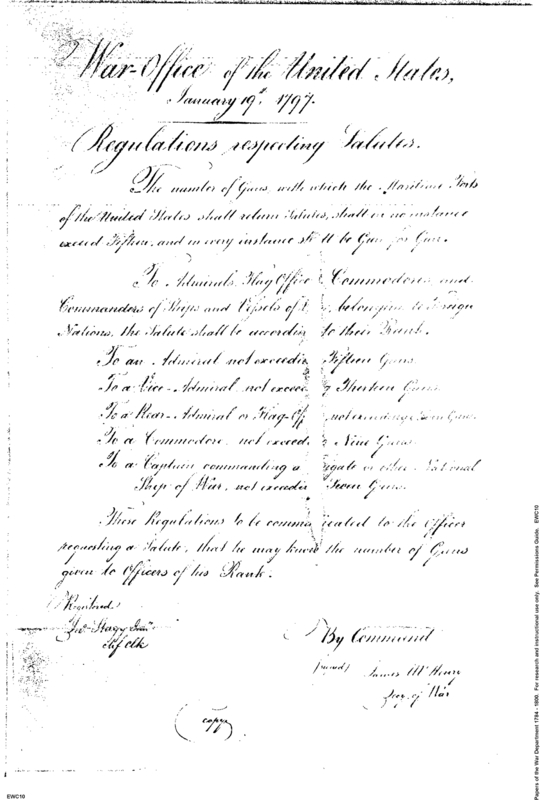 War-Office of the United States,
January 19th. 1797.
Regulations respecting Salutes.
The number of Guns, with which the Maritime Forts
of the United States shall return Salutes, shall in no instance
exceed Fifteen, and in every instance be Gun for Gun.
To Admirals, Flag Commodores and
Commanders of Ships and Vessels of belonging to Foreign
Nations, the Salute shall be to their Rank.
To an Admiral not Fifteen Guns.
To a Vice-Admiral, not Thirteen Guns.
To a Rear-Admiral or not exceeding Guns.
To a Commodore, not Nine Guns.
To a Captain, commanding a or other National
Ship of War, not Seven Guns.
These Regulations to be to the Officer
requesting a Salute, that he may know the number of Guns
given to Officers of his Rank.
Registered
Jno. Stagg Junr.
By Command
(signed) James McHenry
Secy. of War
(copy)
EWC10
Papers of the War Department 1784 - 1800. For research and instructional use only. See Permissions Guide. EWC10